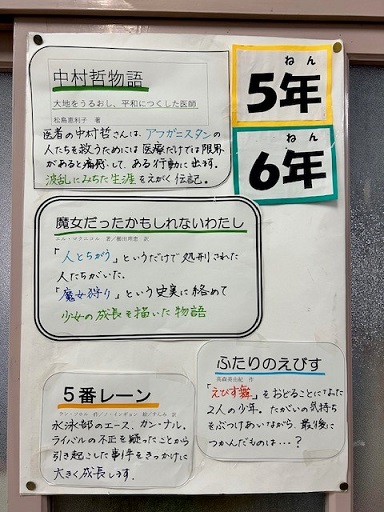 中村哲物語
大地をうるおし、平和につくした医師
松島恵利子 著
医者の中村哲さんは、アフガニスタンの
人たちを救うためには医療だけでは限界
があると痛感して、ある行動に出ます。
波乱にみちた生涯をえがく伝記。
ねん
5年
ねん
6年
魔女だったかもしれないわたし
エル・マクニコル 著/櫛田理絵 訳
「人とちがう」というだけで処刑された
人たちがいた。
「魔女狩り」という史実に絡めて
少女の成長を描いた物語
5番レーン
ウン・ソホル 作/ノ・インギョン 絵/すんみ 訳
水泳部のエース、カン・ナル。
ライバルの不正を疑ったことから
引き起こした事件をきっかけに
大きく成長します。
ふたりのえびす
髙森美由紀 作
「えびす舞」をおどることになった
2人の少年。たがいの気持ち
をぶつけあいながら、最後に
つかんだものは…?